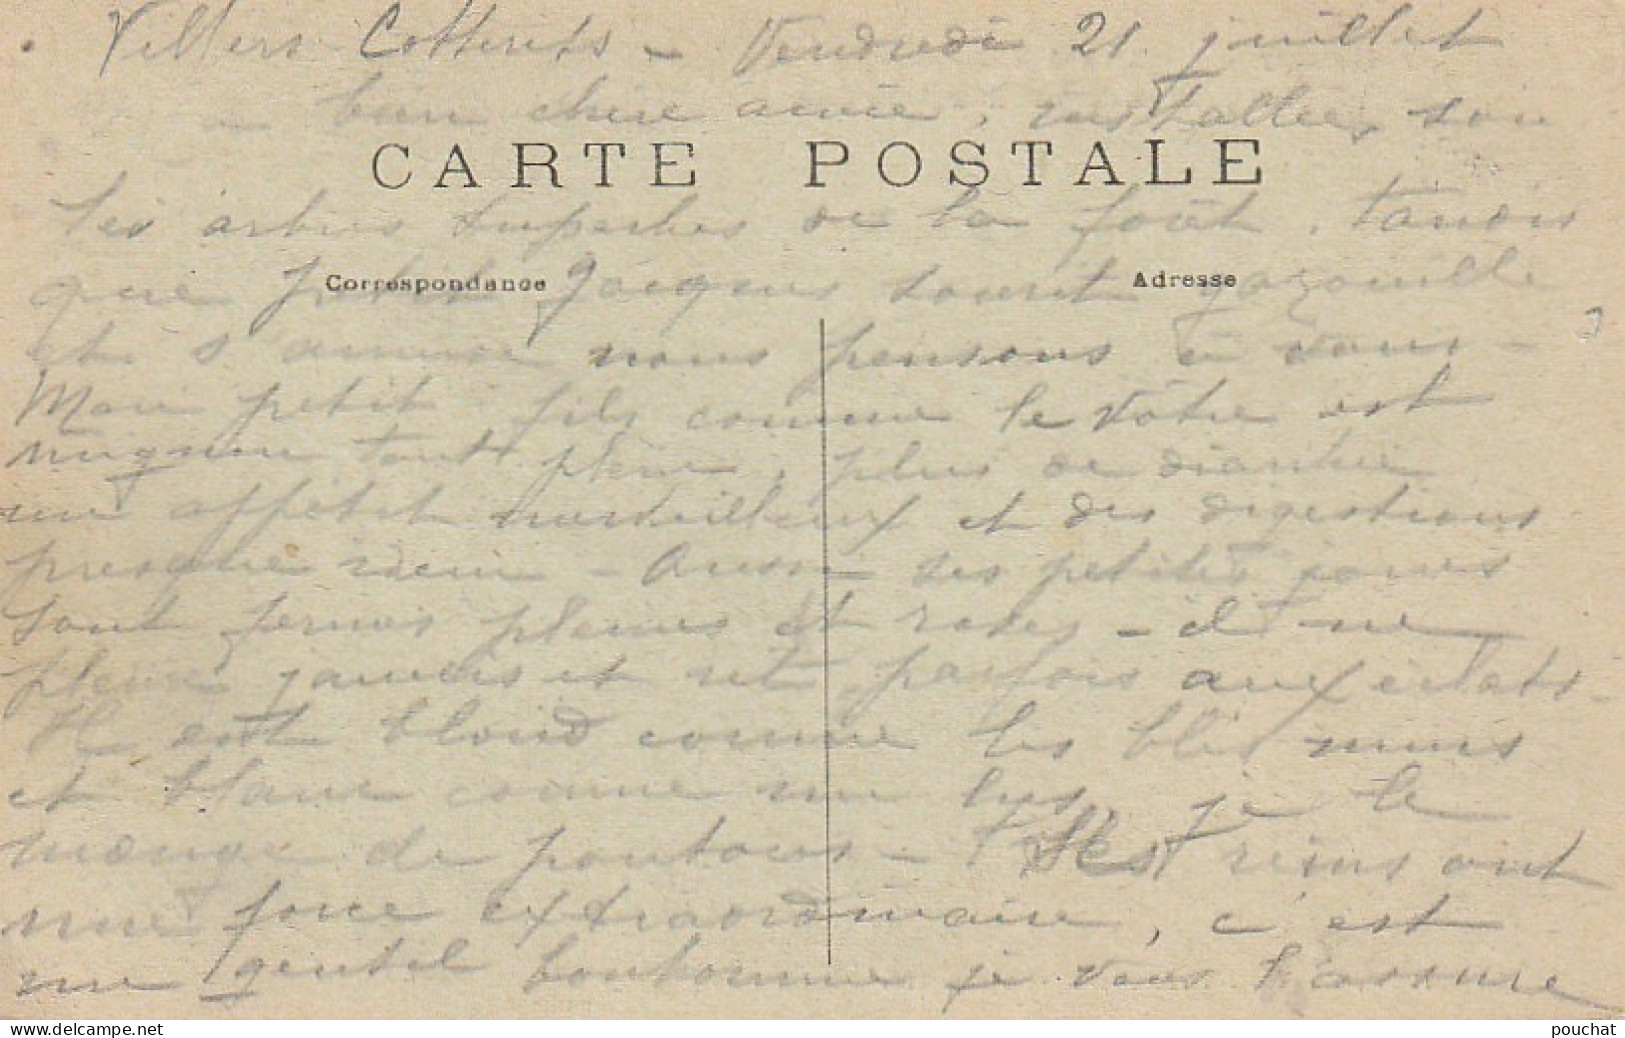 Villers Cotterets - Vendredi 21 juillet
bien chère amie, installées sou
CARTE POSTALE
les arbres superbes de la forêt. tandis
Correspondance
Adresse
que petit Jacques sourit gazouille
et s'amuse nous pensons à vous -
Mon petit fils comme le vôtre est
mignon tout plein, plus de diarrhée
un appétit merveilleux et des digestions
presque idem - Aussi ses petites joues
sont fermes pleines et roses - il ne
pleure jamais et rit parfois aux éclats -
Il est blond comme les blés murs
et blanc comme un lys, je le
mange de poutous - Ses reins ont
une force extraordinaire, c'est
un gentil bonhomme je vous l'assure
pouchat
delcampe.net